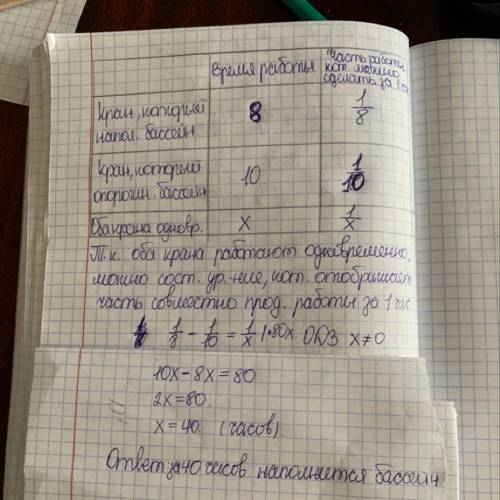 время работы
Часть работы,
кот. можно
сделать за 1 час
Кран, который
напол. бассейн
8
1/8
Кран, который
опорожн. бассейн
10
1/10
Оба крана одновр.
x
1/x
Т.к. оба крана работают одновременно,
можно сост. ур.-ние, кот. отображает
часть совместно прод. работы за 1 час
1/8 - 1/10 = 1/x |·80x. ОДЗ x≠0
10x-8x=80
2x=80.
x=40. (часов).
Ответ за 40 часов наполняется бассейн